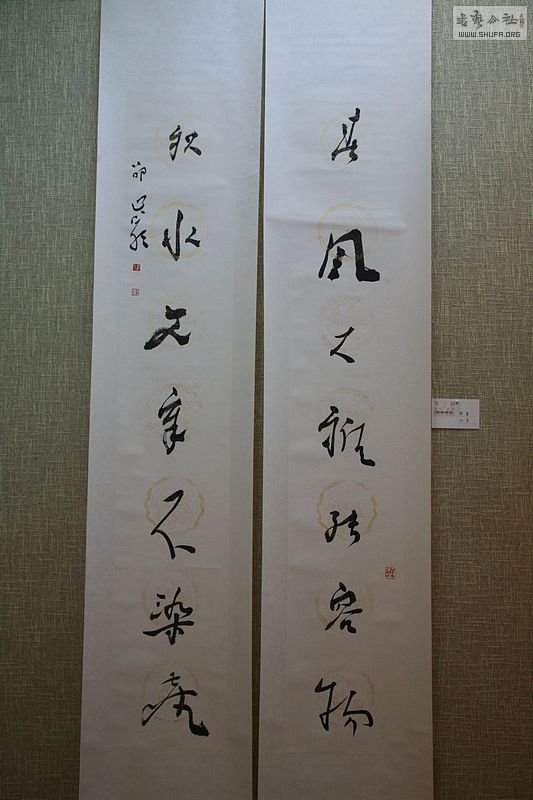 春風大雅能容物
秋水文章不染塵
書藝公社
WWW.SHUFA.ORG